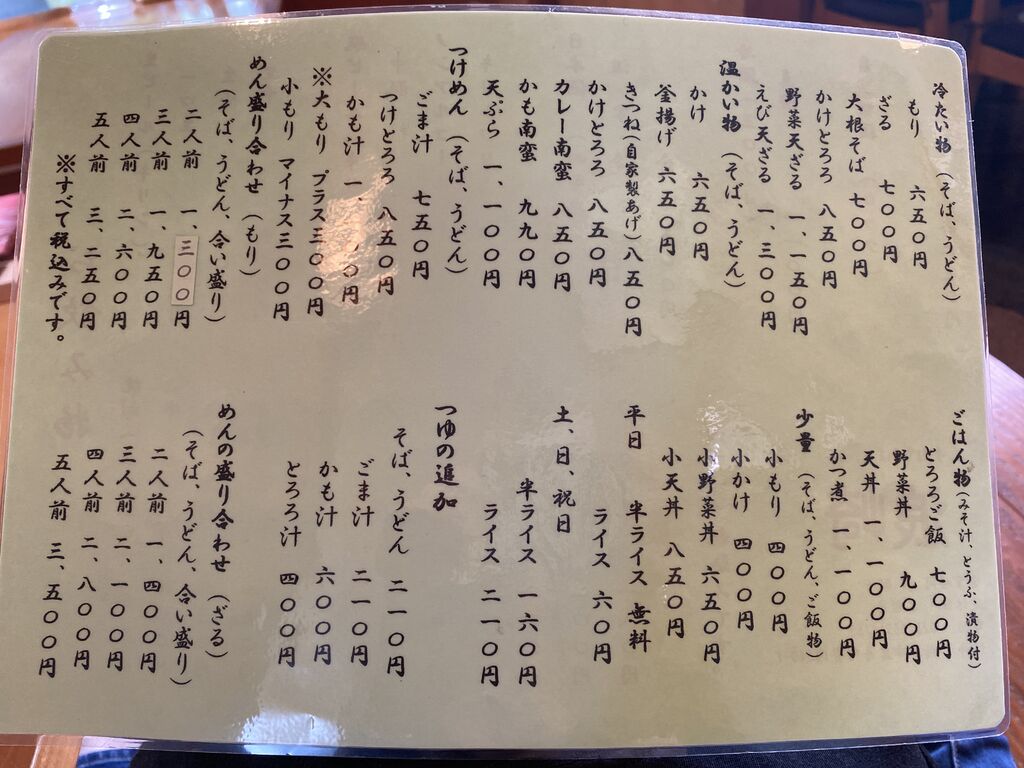 冷たい物（そば、うどん）
もり　六五〇円
ざる　七〇〇円
大根そば　七〇〇円
かけとろろ　八五〇円
野菜天ざる　一、一五〇円
えび天ざる　一、三〇〇円
温かい物（そば、うどん）
かけ　六五〇円
釜揚げ　六五〇円
きつね（自家製あげ）八五〇円
かけとろろ　八五〇円
カレー南蛮　八五〇円
かも南蛮　九九〇円
天ぷら　一、一〇〇円
つけめん（そば、うどん）
ごま汁　七五〇円
つけとろろ　八五〇円
かも汁　一、　〇円
※大もり　プラス三〇〇円
小もり　マイナス三〇〇円
めん盛り合わせ（もり）
（そば、うどん、合い盛り）
二人前　一、三〇〇円
三人前　一、九五〇円
四人前　二、六〇〇円
五人前　三、二五〇円
※すべて税込みです。
ごはん物（みそ汁、とうふ、漬物付）
とろろご飯　七〇〇円
野菜丼　九〇〇円
天丼　一、一〇〇円
かつ煮　一、一〇〇円
少量（そば、うどん、ご飯物）
小もり　四〇〇円
小かけ　四〇〇円
小野菜丼　六五〇円
小天丼　八五〇円
平日　半ライス　無料
ライス　六〇円
土、日、祝日
半ライス　一六〇円
ライス　二一〇円
つゆの追加
そば、うどん　二一〇円
ごま汁　二一〇円
かも汁　六〇〇円
とろろ汁　四〇〇円
めんの盛り合わせ（ざる）
（そば、うどん、合い盛り）
二人前　一、四〇〇円
三人前　二、一〇〇円
四人前　二、八〇〇円
五人前　三、五〇〇円